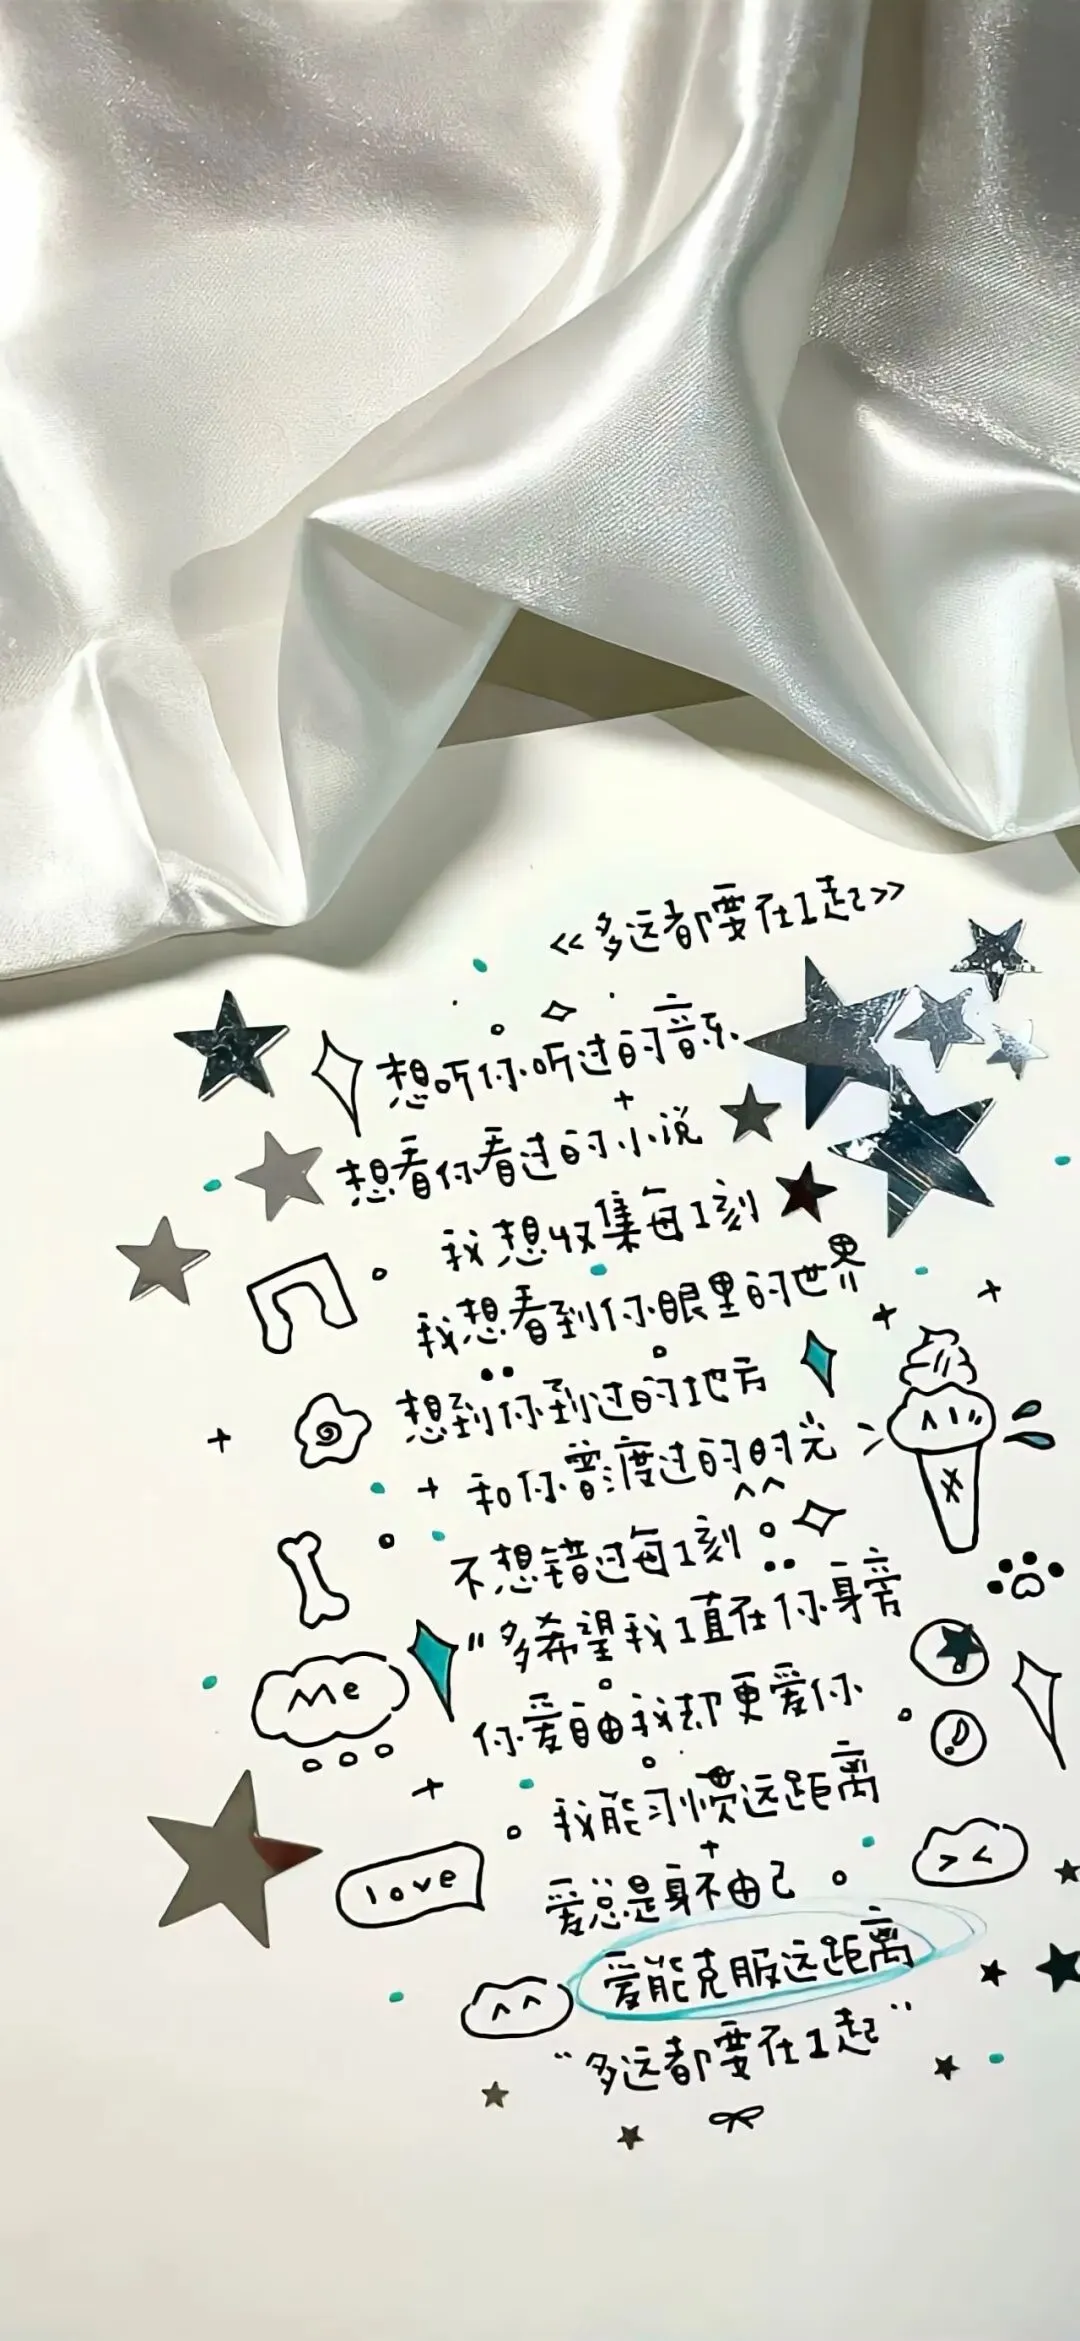 <<多远都要在1起>>
想听你听过的音乐
想看你看过的小说
我想收集每1刻
我想看到你眼里的世界
想到你到过的地方
和你曾度过的时光
不想错过每1刻
"多希望我1直在你身旁
Me
你爱自由我却更爱你
我能习惯远距离
love
爱总是身不由己
爱能克服远距离
"多远都要在1起"